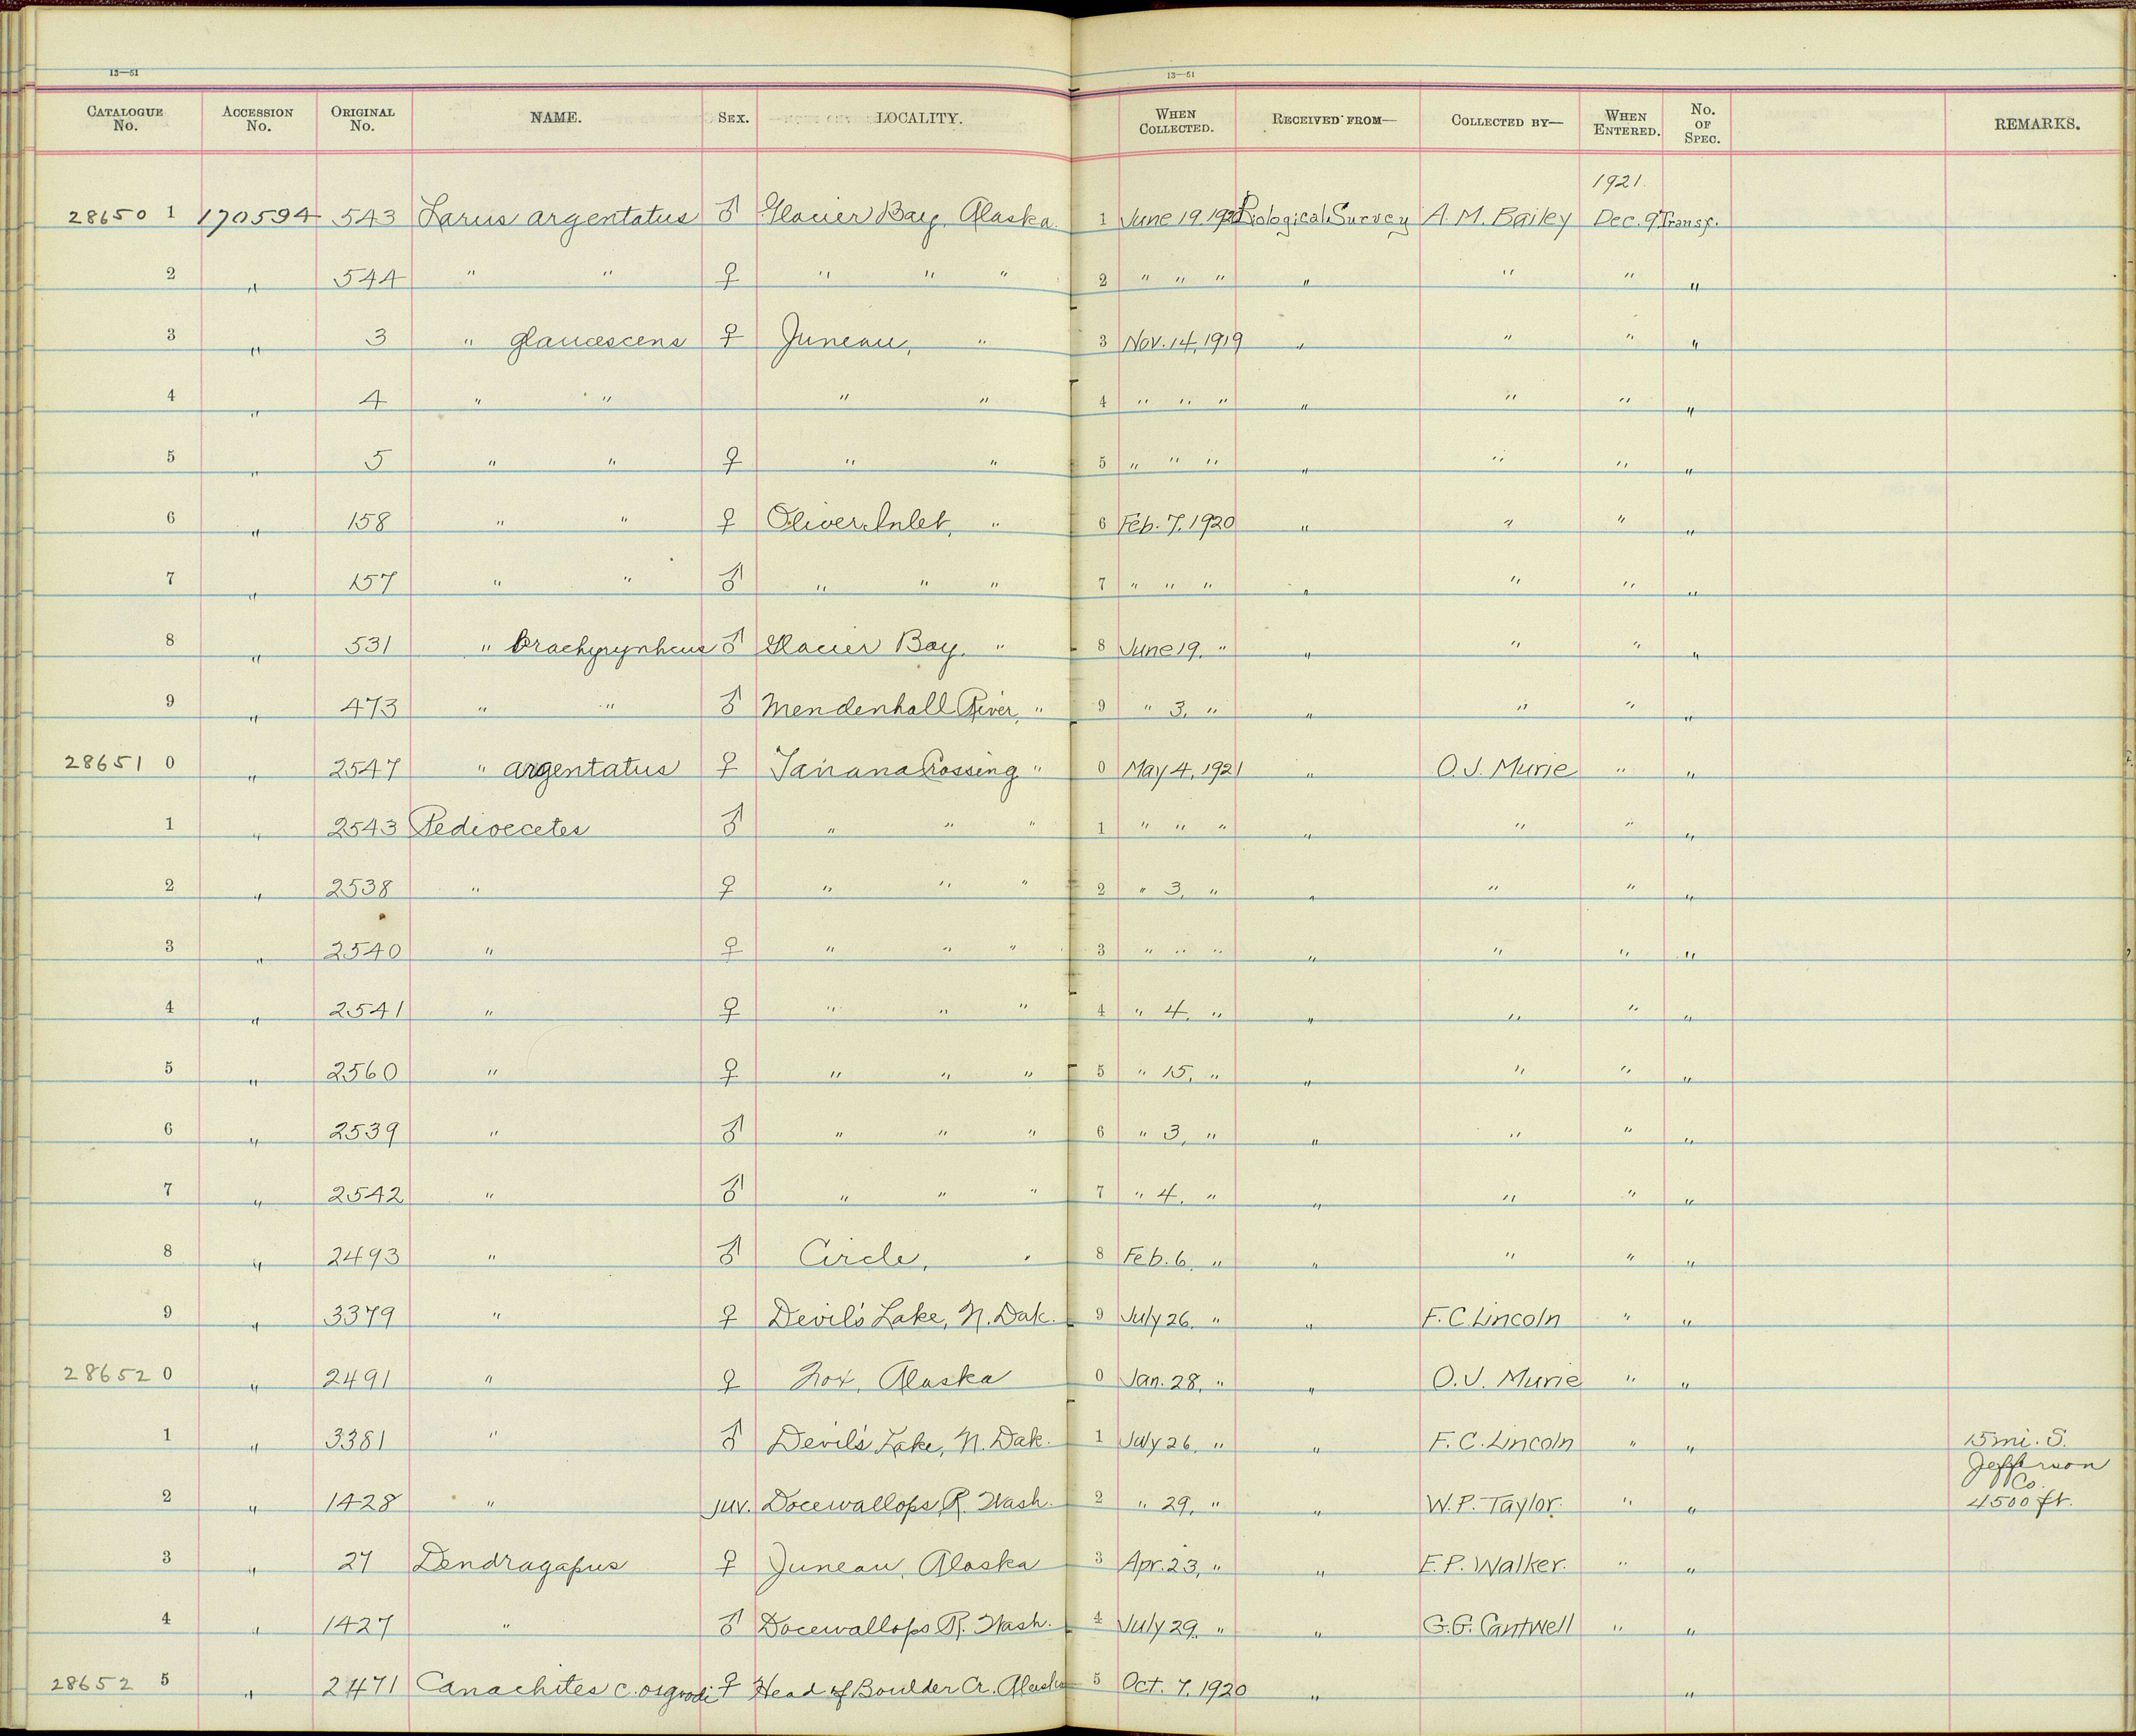 13—51 13—51
CATALOGUE No. ACCESSION No. ORIGINAL No. NAME. SEX. LOCALITY. WHEN COLLECTED. RECEIVED FROM— COLLECTED BY— WHEN ENTERED. No. OF SPEC. REMARKS.
1921
28650 1 170594 543 Larus argentatus ♂ Glacier Bay, Alaska. 1 June 19, 1920 Biological Survey A. M. Bailey Dec. 9 Transf.
2 " 544 " " ♀ " " " 2 " " " " " " "
3 " 3 " glaucescens ♀ Juneau, " 3 Nov. 14, 1919 " " " "
4 " 4 " " " " 4 " " " " " " "
5 " 5 " " ♀ " " 5 " " " " " " "
6 " 158 " " ♀ Oliver Inlet, " 6 Feb. 7, 1920 " " " "
7 " 157 " " ♂ " " " 7 " " " " " " "
8 " 531 " brachyrynhcus ♂ Glacier Bay, " 8 June 19, " " " " "
9 " 473 " " ♂ Mendenhall River, " 9 " 3, " " " " "
28651 0 " 2547 " argentatus ♀ Tanana Crossing " 0 May 4, 1921 " O. J. Murie " "
1 " 2543 Pedioecetes ♂ " " " 1 " " " " " " "
2 " 2538 " ♀ " " " 2 " 3, " " " " "
3 " 2540 " ♀ " " " 3 " " " " " " "
4 " 2541 " ♀ " " " 4 " 4, " " " " "
5 " 2560 " ♀ " " " 5 " 15, " " " " "
6 " 2539 " ♂ " " " 6 " 3, " " " " "
7 " 2542 " ♂ " " " 7 " 4, " " " " "
8 " 2493 " ♂ Circle, " 8 Feb. 6, " " " " "
9 " 3379 " ♀ Devil's Lake, N. Dak. 9 July 26, " " F. C. Lincoln " "
28652 0 " 2491 " ♀ Alaska 0 Jan. 28, " " O. J. Murie " "
1 " 3381 " ♂ Devil's Lake, N. Dak. 1 July 26, " " F. C. Lincoln " " 15 mi. S.
Jefferson
Co.
2 " 1428 " juv. Docewallops R. Wash. 2 " 29, " " W. P. Taylor. " " 4500 ft.
3 " 27 Dendragapus ♀ Juneau, Alaska 3 Apr. 23, " " E. P. Walker. " "
4 " 1427 " ♂ Docewallops R. Wash. 4 July 29, " " G. G. Cantwell " "
28652 5 " 2471 Canachites c. osgoodi ♀ Head of Boulder Cr. Alaska 5 Oct. 7, 1920 " "